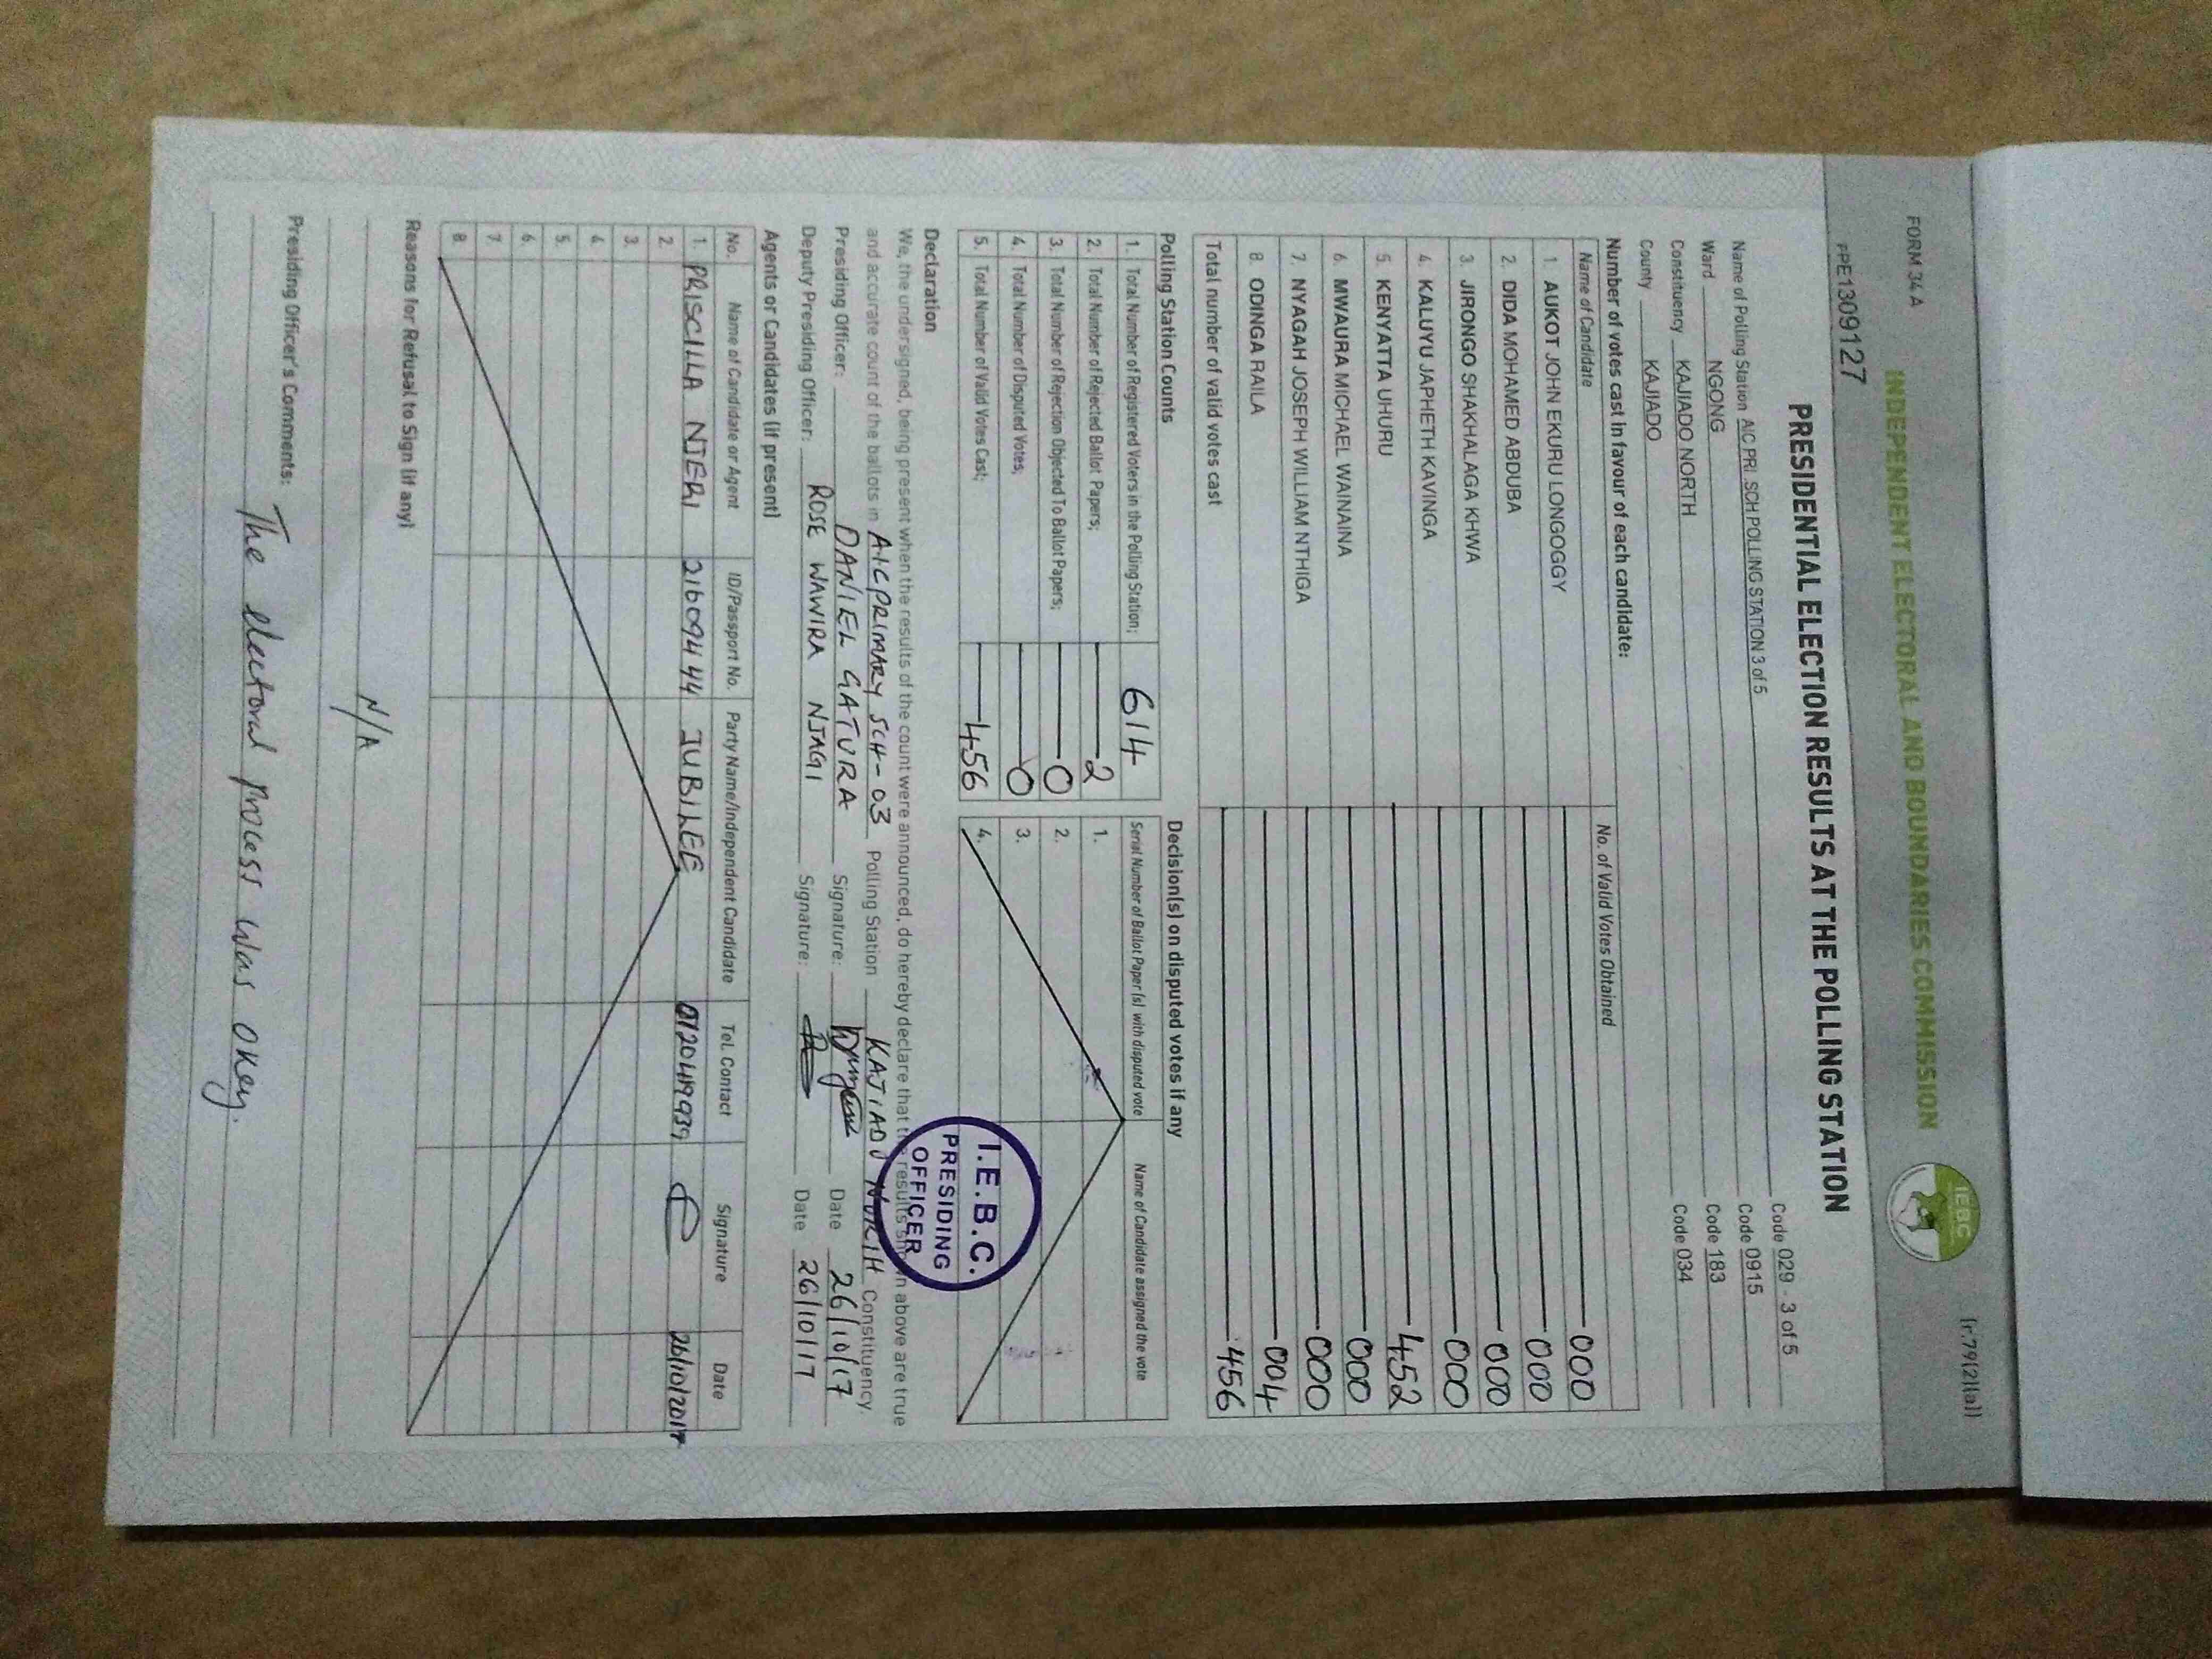 FORM 34 A
[r.79(2)(a)]
INDEPENDENT ELECTORAL AND BOUNDARIES COMMISSION
IEBC
PPE1309127
PRESIDENTIAL ELECTION RESULTS AT THE POLLING STATION
Code 029 - 3 of 5
Name of Polling Station AIC PRI. SCH POLLING STATION 3 of 5 Code 0915
Ward NGONG Code 183
Constituency KAJIADO NORTH Code 034
County KAJIADO
Number of votes cast in favour of each candidate:
Name of Candidate No. of Valid Votes Obtained
1. AUKOT JOHN EKURU LONGOGGY 000
2. DIDA MOHAMED ABDUBA 000
3. JIRONGO SHAKHALAGA KHWA 000
4. KALUYU JAPHETH KAVINGA 000
5. KENYATTA UHURU 452
6. MWAURA MICHAEL WAINAINA 000
7. NYAGAH JOSEPH WILLIAM NTHIGA 000
8. ODINGA RAILA 004
Total number of valid votes cast 456
Polling Station Counts
1. Total Number of Registered Voters in the Polling Station; 614
2. Total Number of Rejected Ballot Papers; 2
3. Total Number of Rejection Objected To Ballot Papers; 0
4. Total Number of Disputed Votes; 0
5. Total Number of Valid Votes Cast; 456
Decision(s) on disputed votes if any
Serial Number of Ballot Paper (s) with disputed vote Name of Candidate assigned the vote
1.
2.
3.
4.
Declaration
We, the undersigned, being present when the results of the count were announced, do hereby declare that the results shown above are true
and accurate count of the ballots in AIC PRIMARY SCH - 03 Polling Station KAJIADO NORTH Constituency.
Presiding Officer: DANIEL GATURA Signature: Date 26/10/17
Deputy Presiding Officer: ROSE WAWIRA NJAGI Signature: Date 26/10/17
I.E.B.C.
PRESIDING
OFFICER
Agents or Candidates (if present)
No. Name of Candidate or Agent ID/Passport No. Party Name/Independent Candidate Tel. Contact Signature Date
1. PRISCILLA NJERI 21609444 JUBILEE 26/10/2017
2.
3.
4.
5.
6.
7.
8.
Reasons for Refusal to Sign (if any)
N/A
Presiding Officer's Comments:
The electoral process was okey.